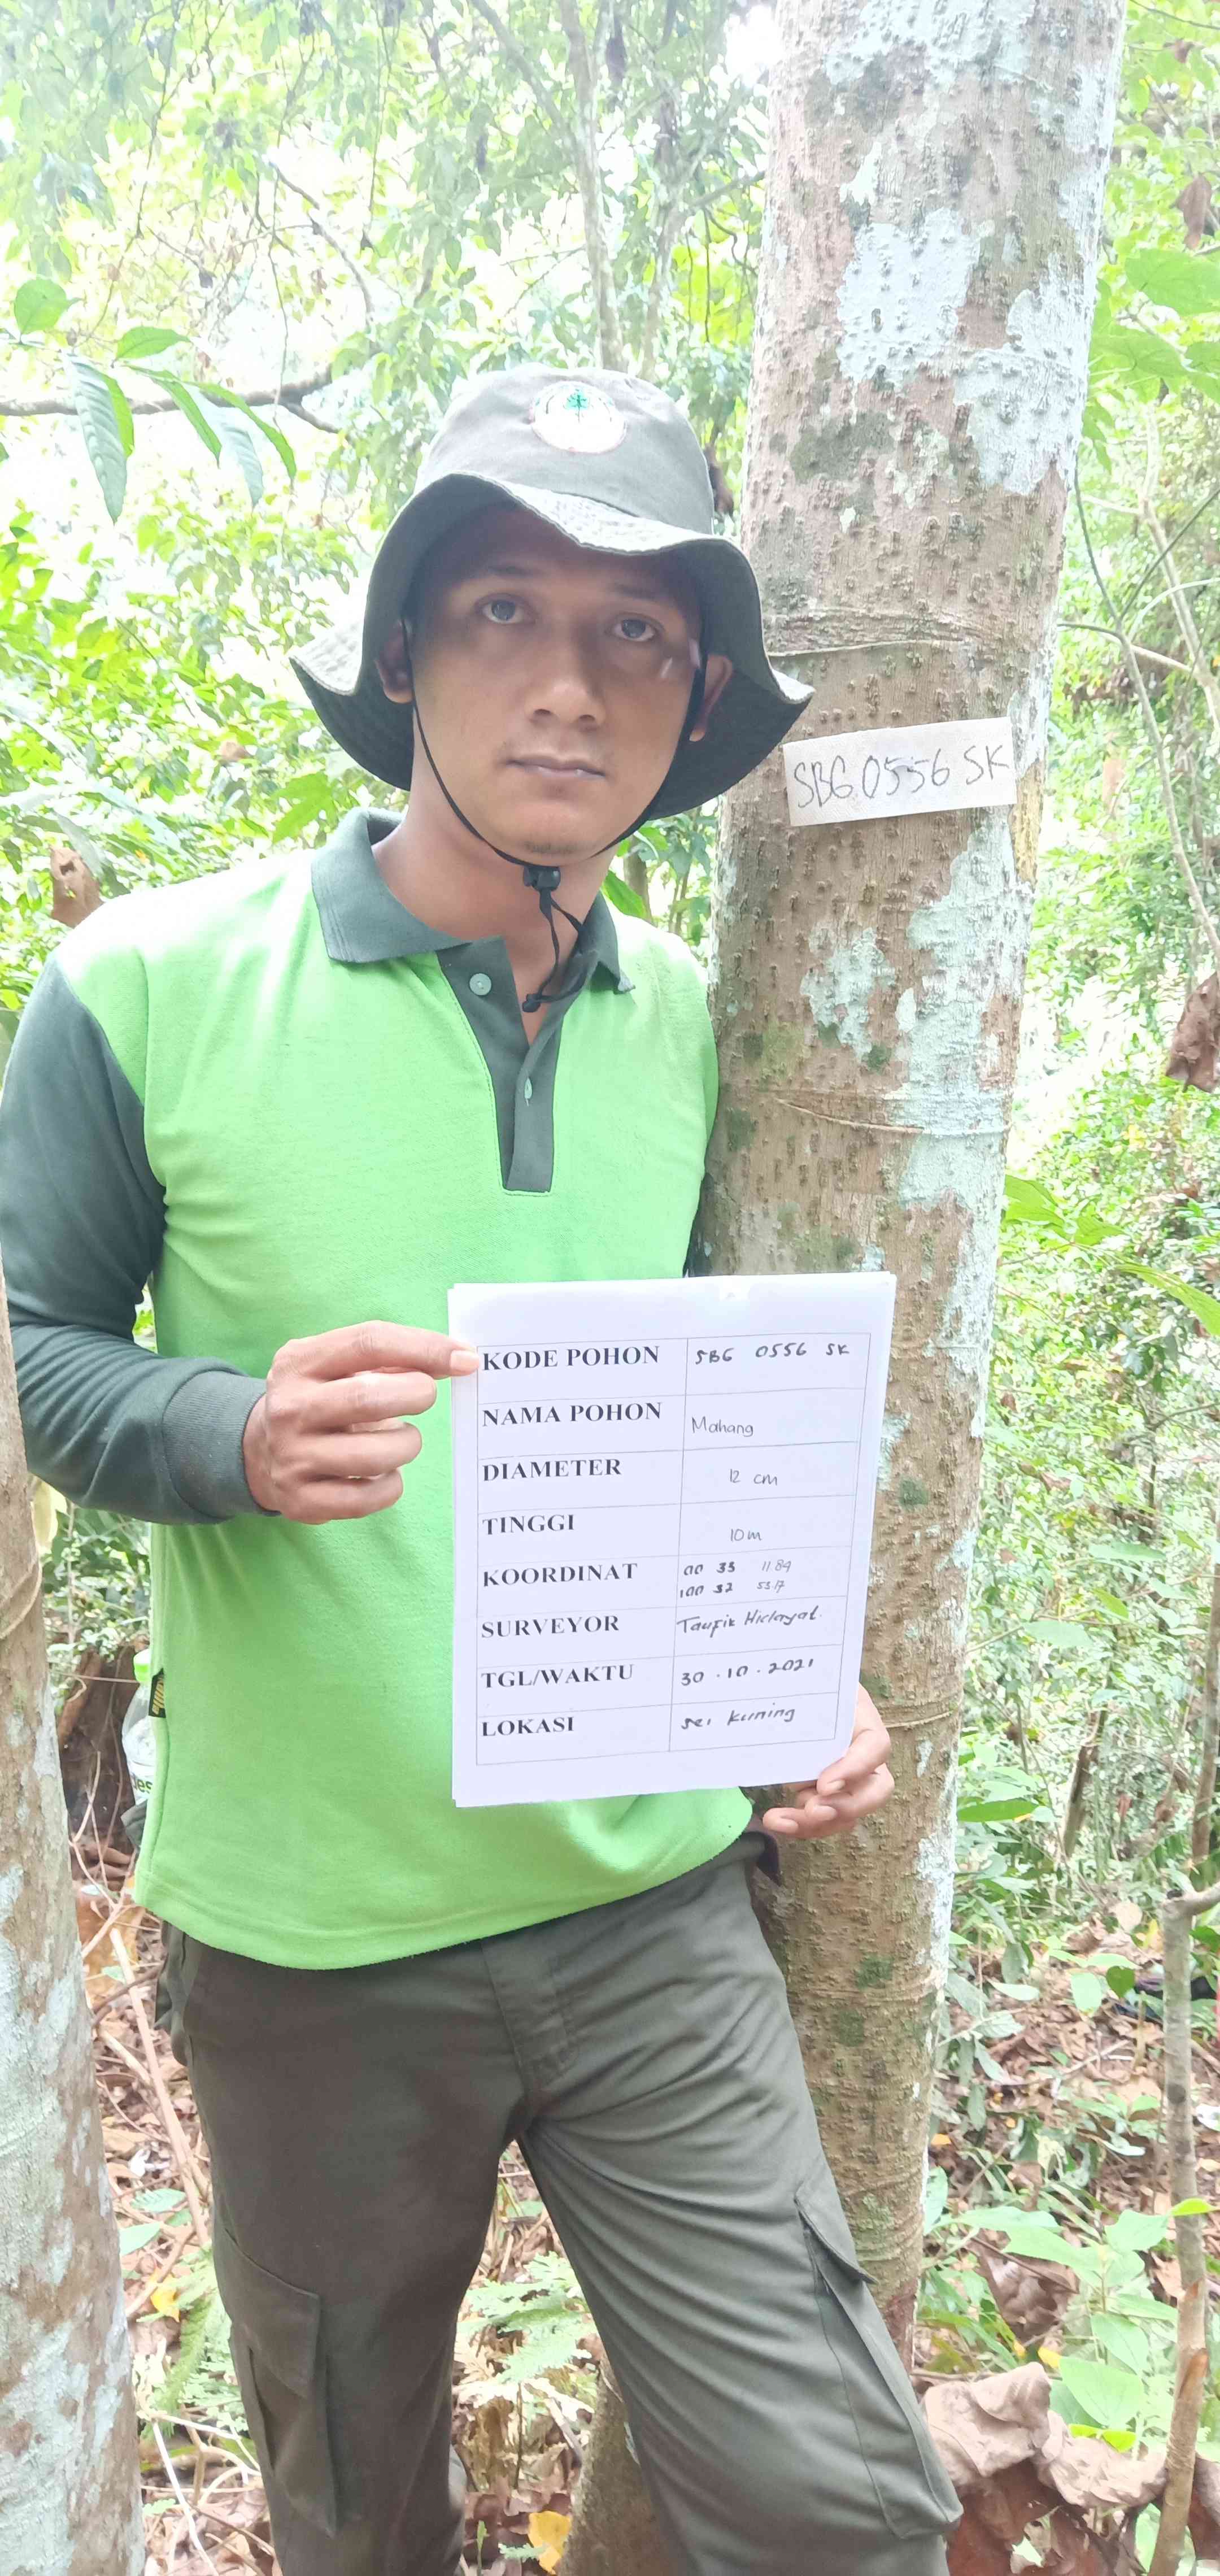 SBG 0556 SK
KODE POHON SBG 0556 SK
NAMA POHON Mahang
DIAMETER 12 cm
TINGGI 10 m
KOORDINAT 00 33 11.89
100 32 53.17
SURVEYOR Taufik Hidayat.
TGL/WAKTU 30.10.2021
LOKASI sei kuning